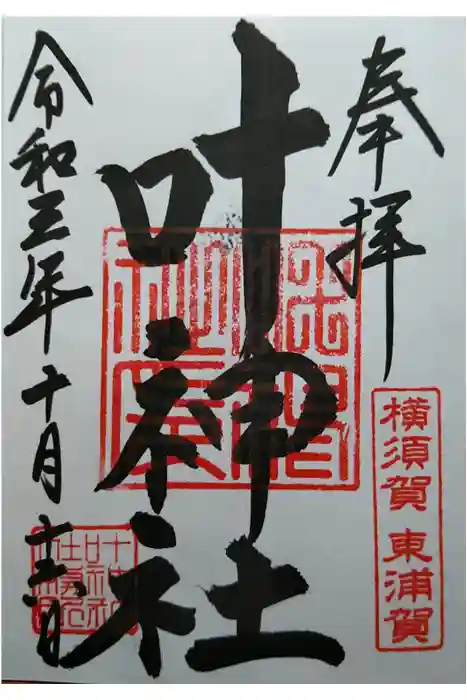 奉拝
横須賀 東浦賀
叶神社
令和三年十月十六日